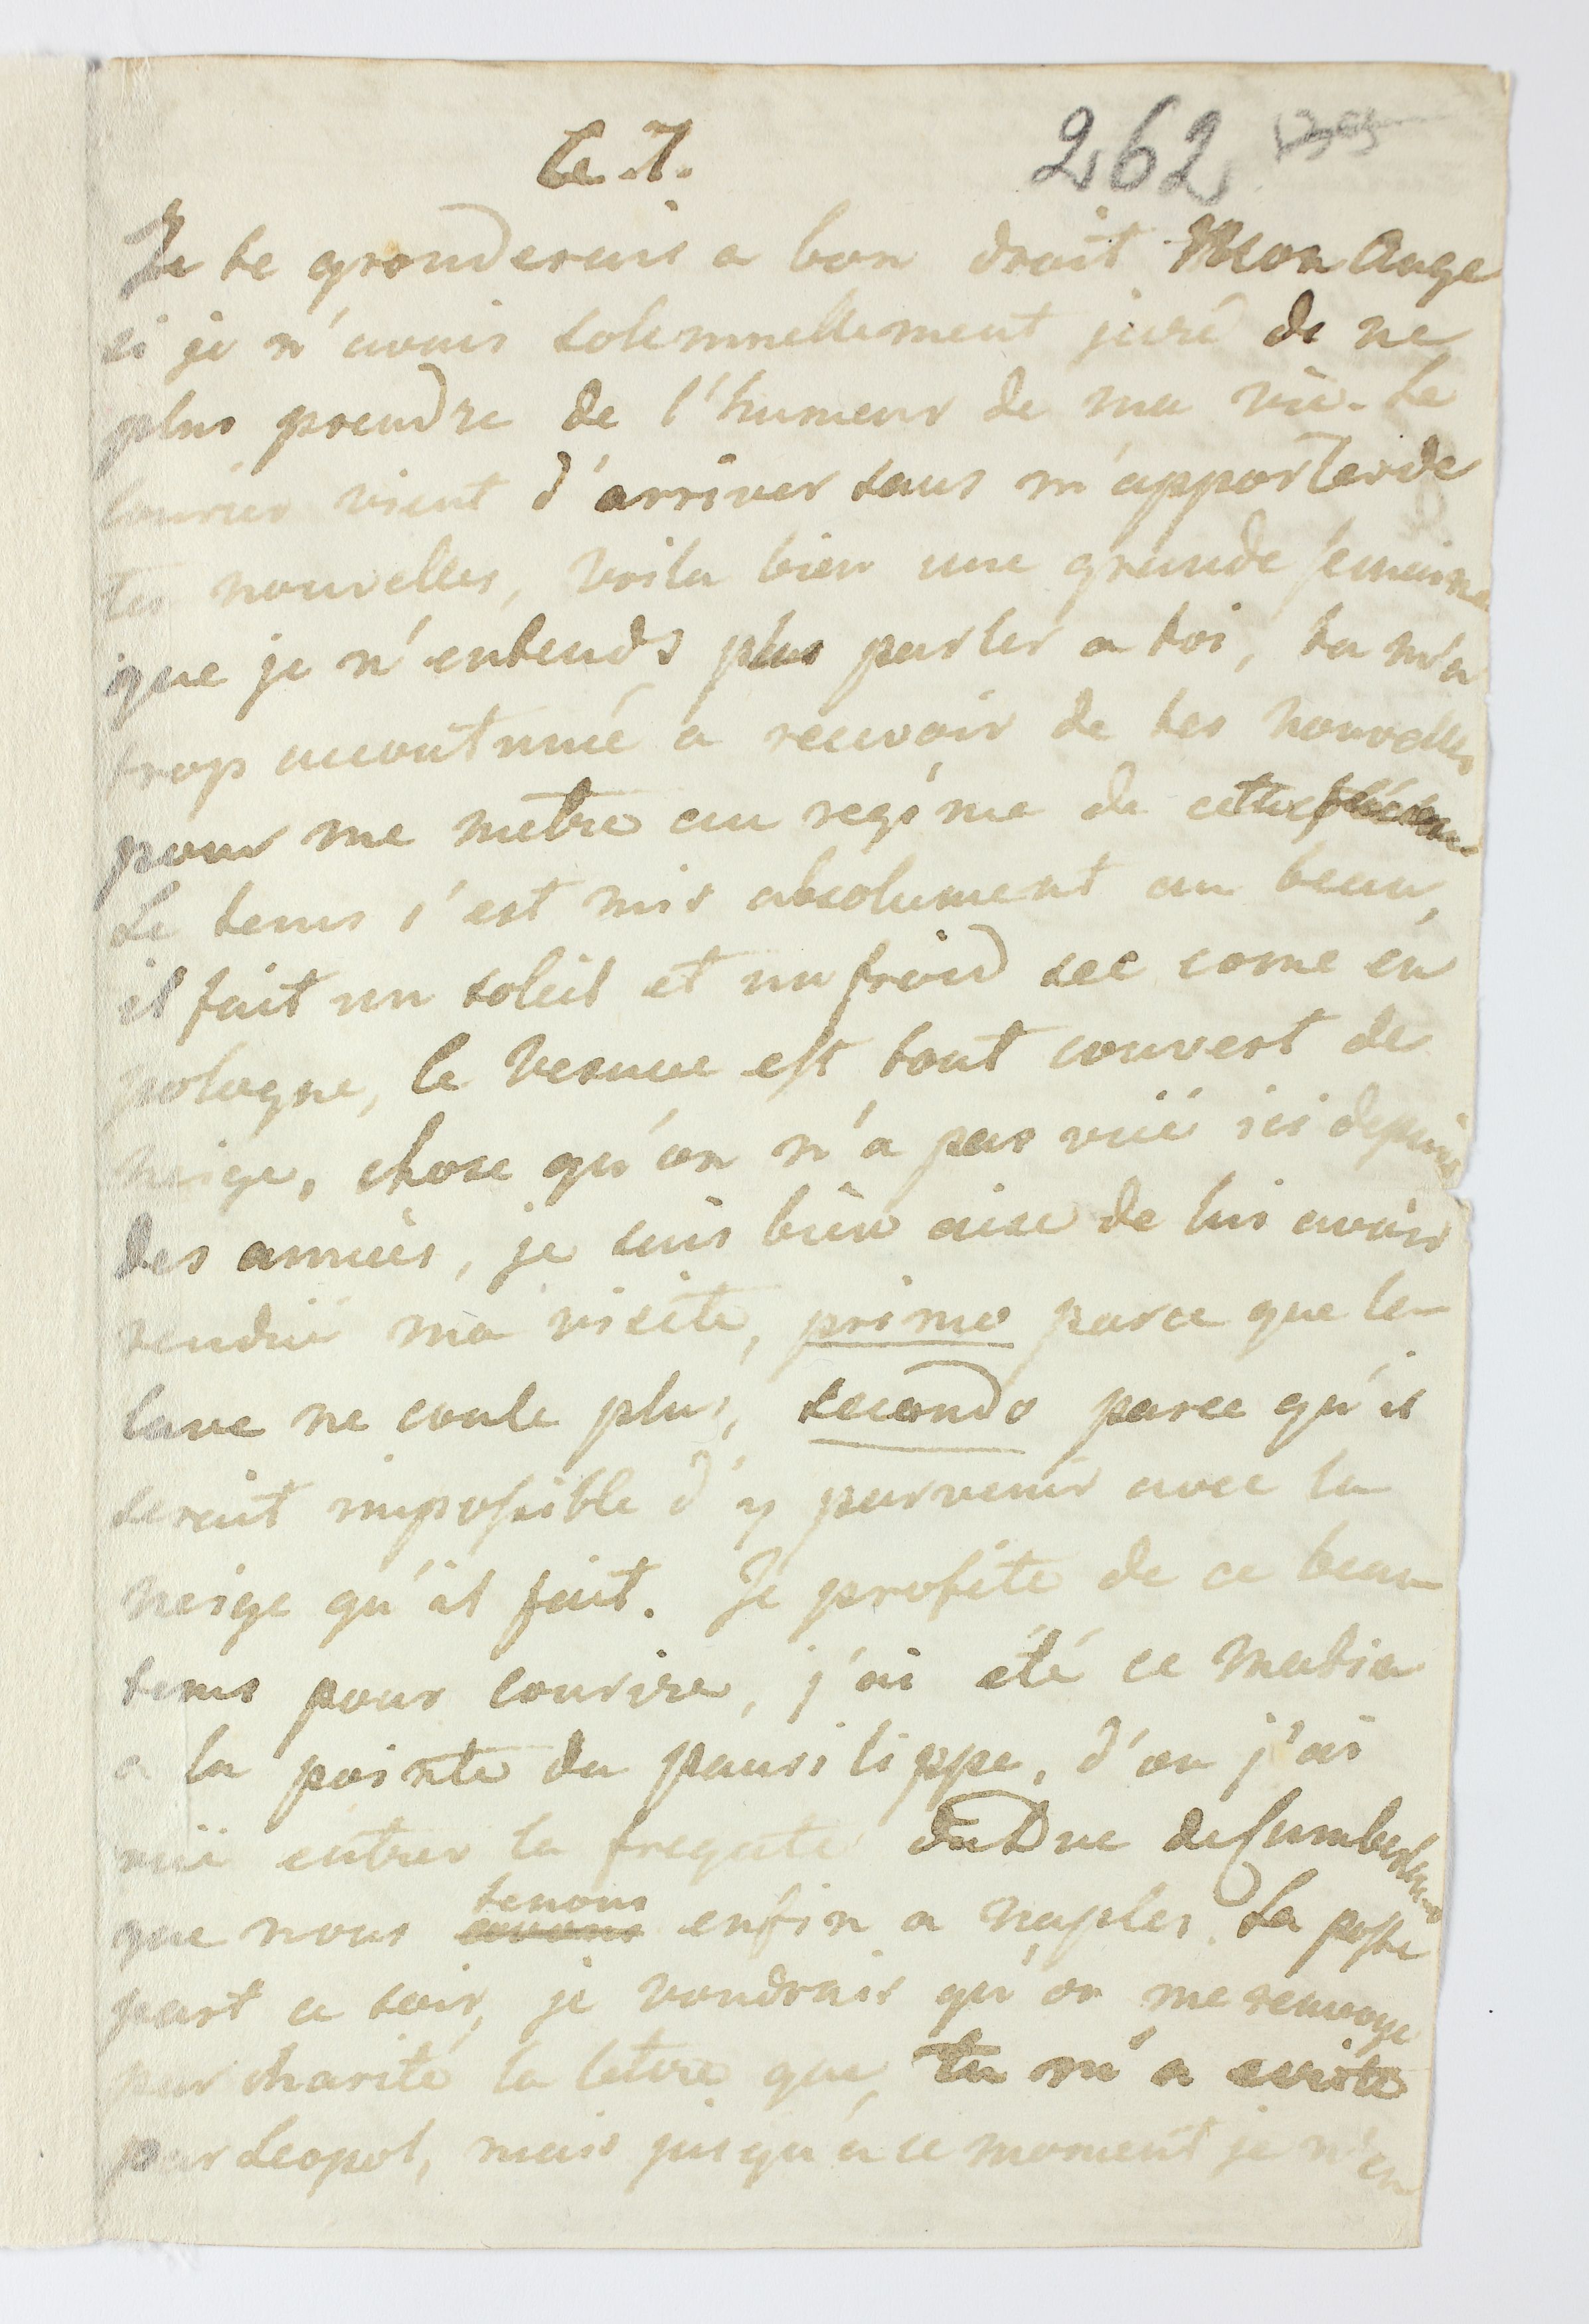 Ce 7. 262
Je te gronderais a bon droit Mon Ange
si je n'avais solemnellement juré de ne
plus prendre de l'humeur de ma vie. Le
courier vient d'arriver sans m'apporter de
tes nouvelles, voila bien une grande semaine
que je n'entends plus parler a toi, tu m'a
trop accoutumé a recevoir de tes nouvelles
pour me metre au regime de cette façon
Le tems s'est mis absolument au beau,
il fait un soleil et un froid sec come en
pologne, le Vesuve est tout couvert de
neige, chose qu'on n'a pas vüe ici depuis
des années, je suis bien aise de lui avoir
rendüe ma visite, primo parce que la
lave ne coule plus, secondo parce qu'il
serait impossible d'y parvenir avec la
neige qu'il fait. Je profite de ce beau
tems pour courire, j'ai été ce matin
a la pointe du pausilippe, d'ou j'ai
vüe entrer la fregate du Duc de Cumberland
que nous avons tenons enfin a naples. La poste
part ce soir, je voudrais qu'on me renvoye
par charité la lettre que tu m'a ecrite
par Leopol, mais jusqu'a ce moment je n'en